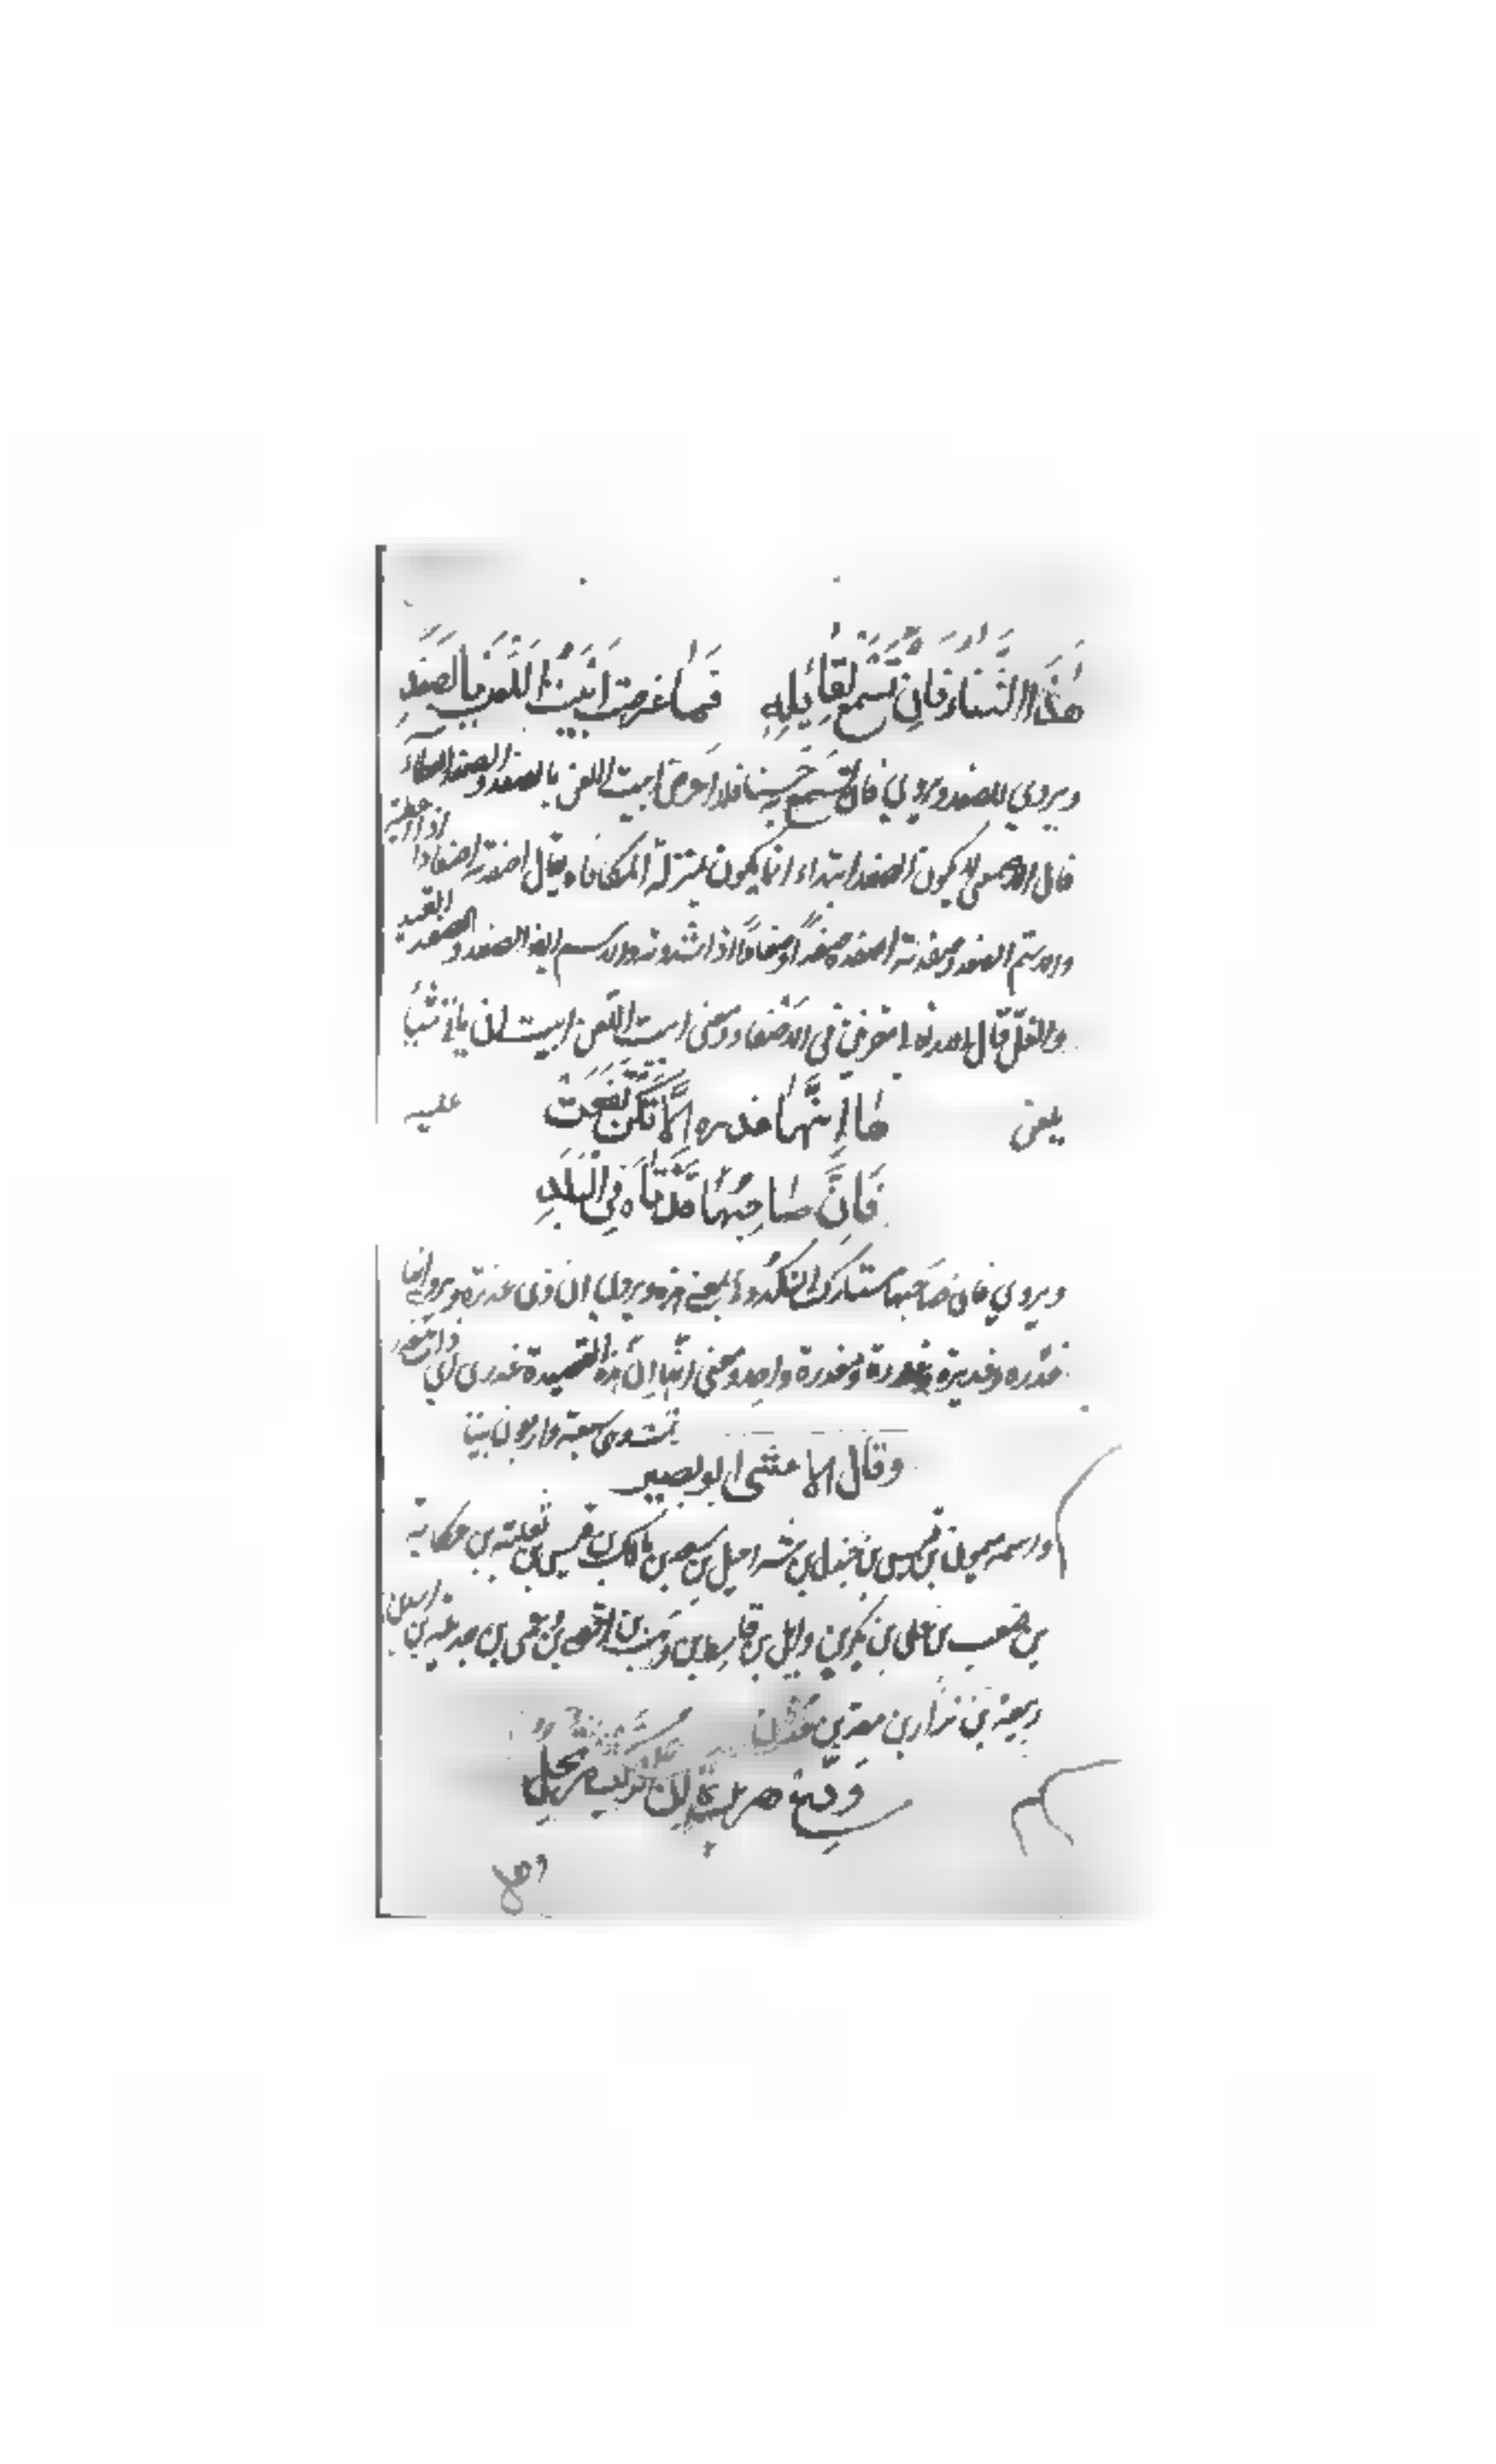 هٰذَا الثَّنَاءُ فَاِنْ تَسْمَعْ لِقَائِلِهِ فَمَا عَرَضْتُ اَبَيْتَ اللَّعْنَ بِالصَّفَدِ
ويروي للصفد ويروي فان تسمع به حسنا فلم اعرض ابيت اللعن بالصفد والصفد العطاء
قال الاصمعي لا يكون الصفد ابتداء انما يكون بمنزلة المكافاة يقال اصفدته اصفادا اذا اعطيته
والاسم الصفد وصفدته اصفده صفدًا وصفادًا اذا شددته والاسم ايضا الصفد والصفد القيد
والغل قال الله مقرنين في الاصفاد ومعنى ابيت اللعن ابيت ان ياتي شيأ
يلعن عليه
هَا اِنَّهَا عذره اِلَّا تَكُنْ نَفَعَتْ
فَاِنَّ صَاحِبَهَا قد تَاهَ فِي الْبَلَدِ
ويروي فان صاحبها مشارك النكد ويروي ان ذي عذرة ويروي انها
عذره وعذيرة ومعذرة واحد ومعنى انها ان هذه القصيدة عذري اي ذات عذر
تمت وهي سبعة واربعون بيتا
وقال الاعشى ابو بصير
واسمه ميمون بن قيس بن جندل بن شراحيل بن سعد بن مالك بن قيس بن ثعلبة بن عكابة
بن صعب بن علي بن بكر بن وايل بن قاسط بن هنب بن افصى بن دعمي بن جديلة بن اسد بن
ربيعة بن نزار بن معد بن عدنان
وَدِّعْ هريرة اِنَّ الركب مرتحل
وهل